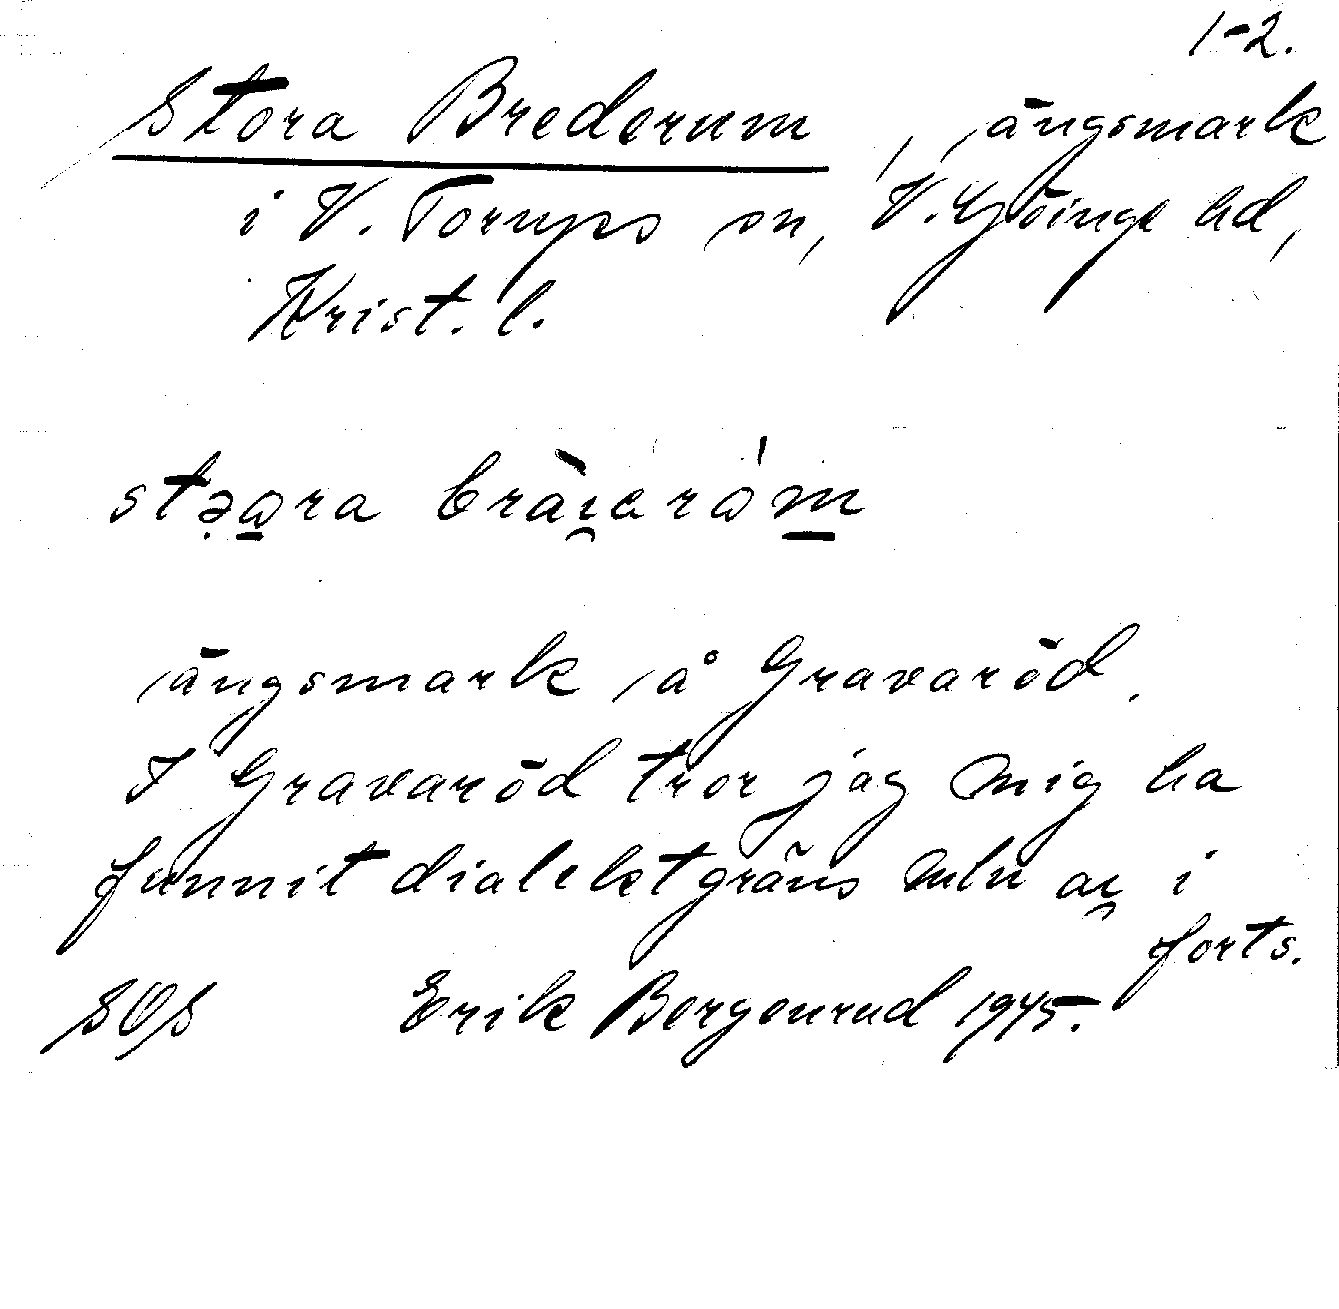 1-2.
Stora Brederum, ängsmark
i V. Torups sn, V. Göinge hd,
Krist. l.
ängsmark å Gravaröd.
I Gravaröd tror jag mig ha
funnit dialektgräns mln ai̯ i
forts.
SOS Erik Bergenrud 1945.